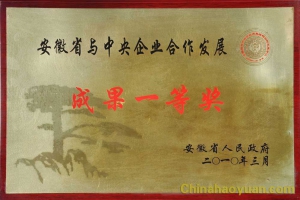 安徽省与中央企业合作发展
成果一等奖
安徽省人民政府
二〇一〇年三月
Chinahaoyuan.com